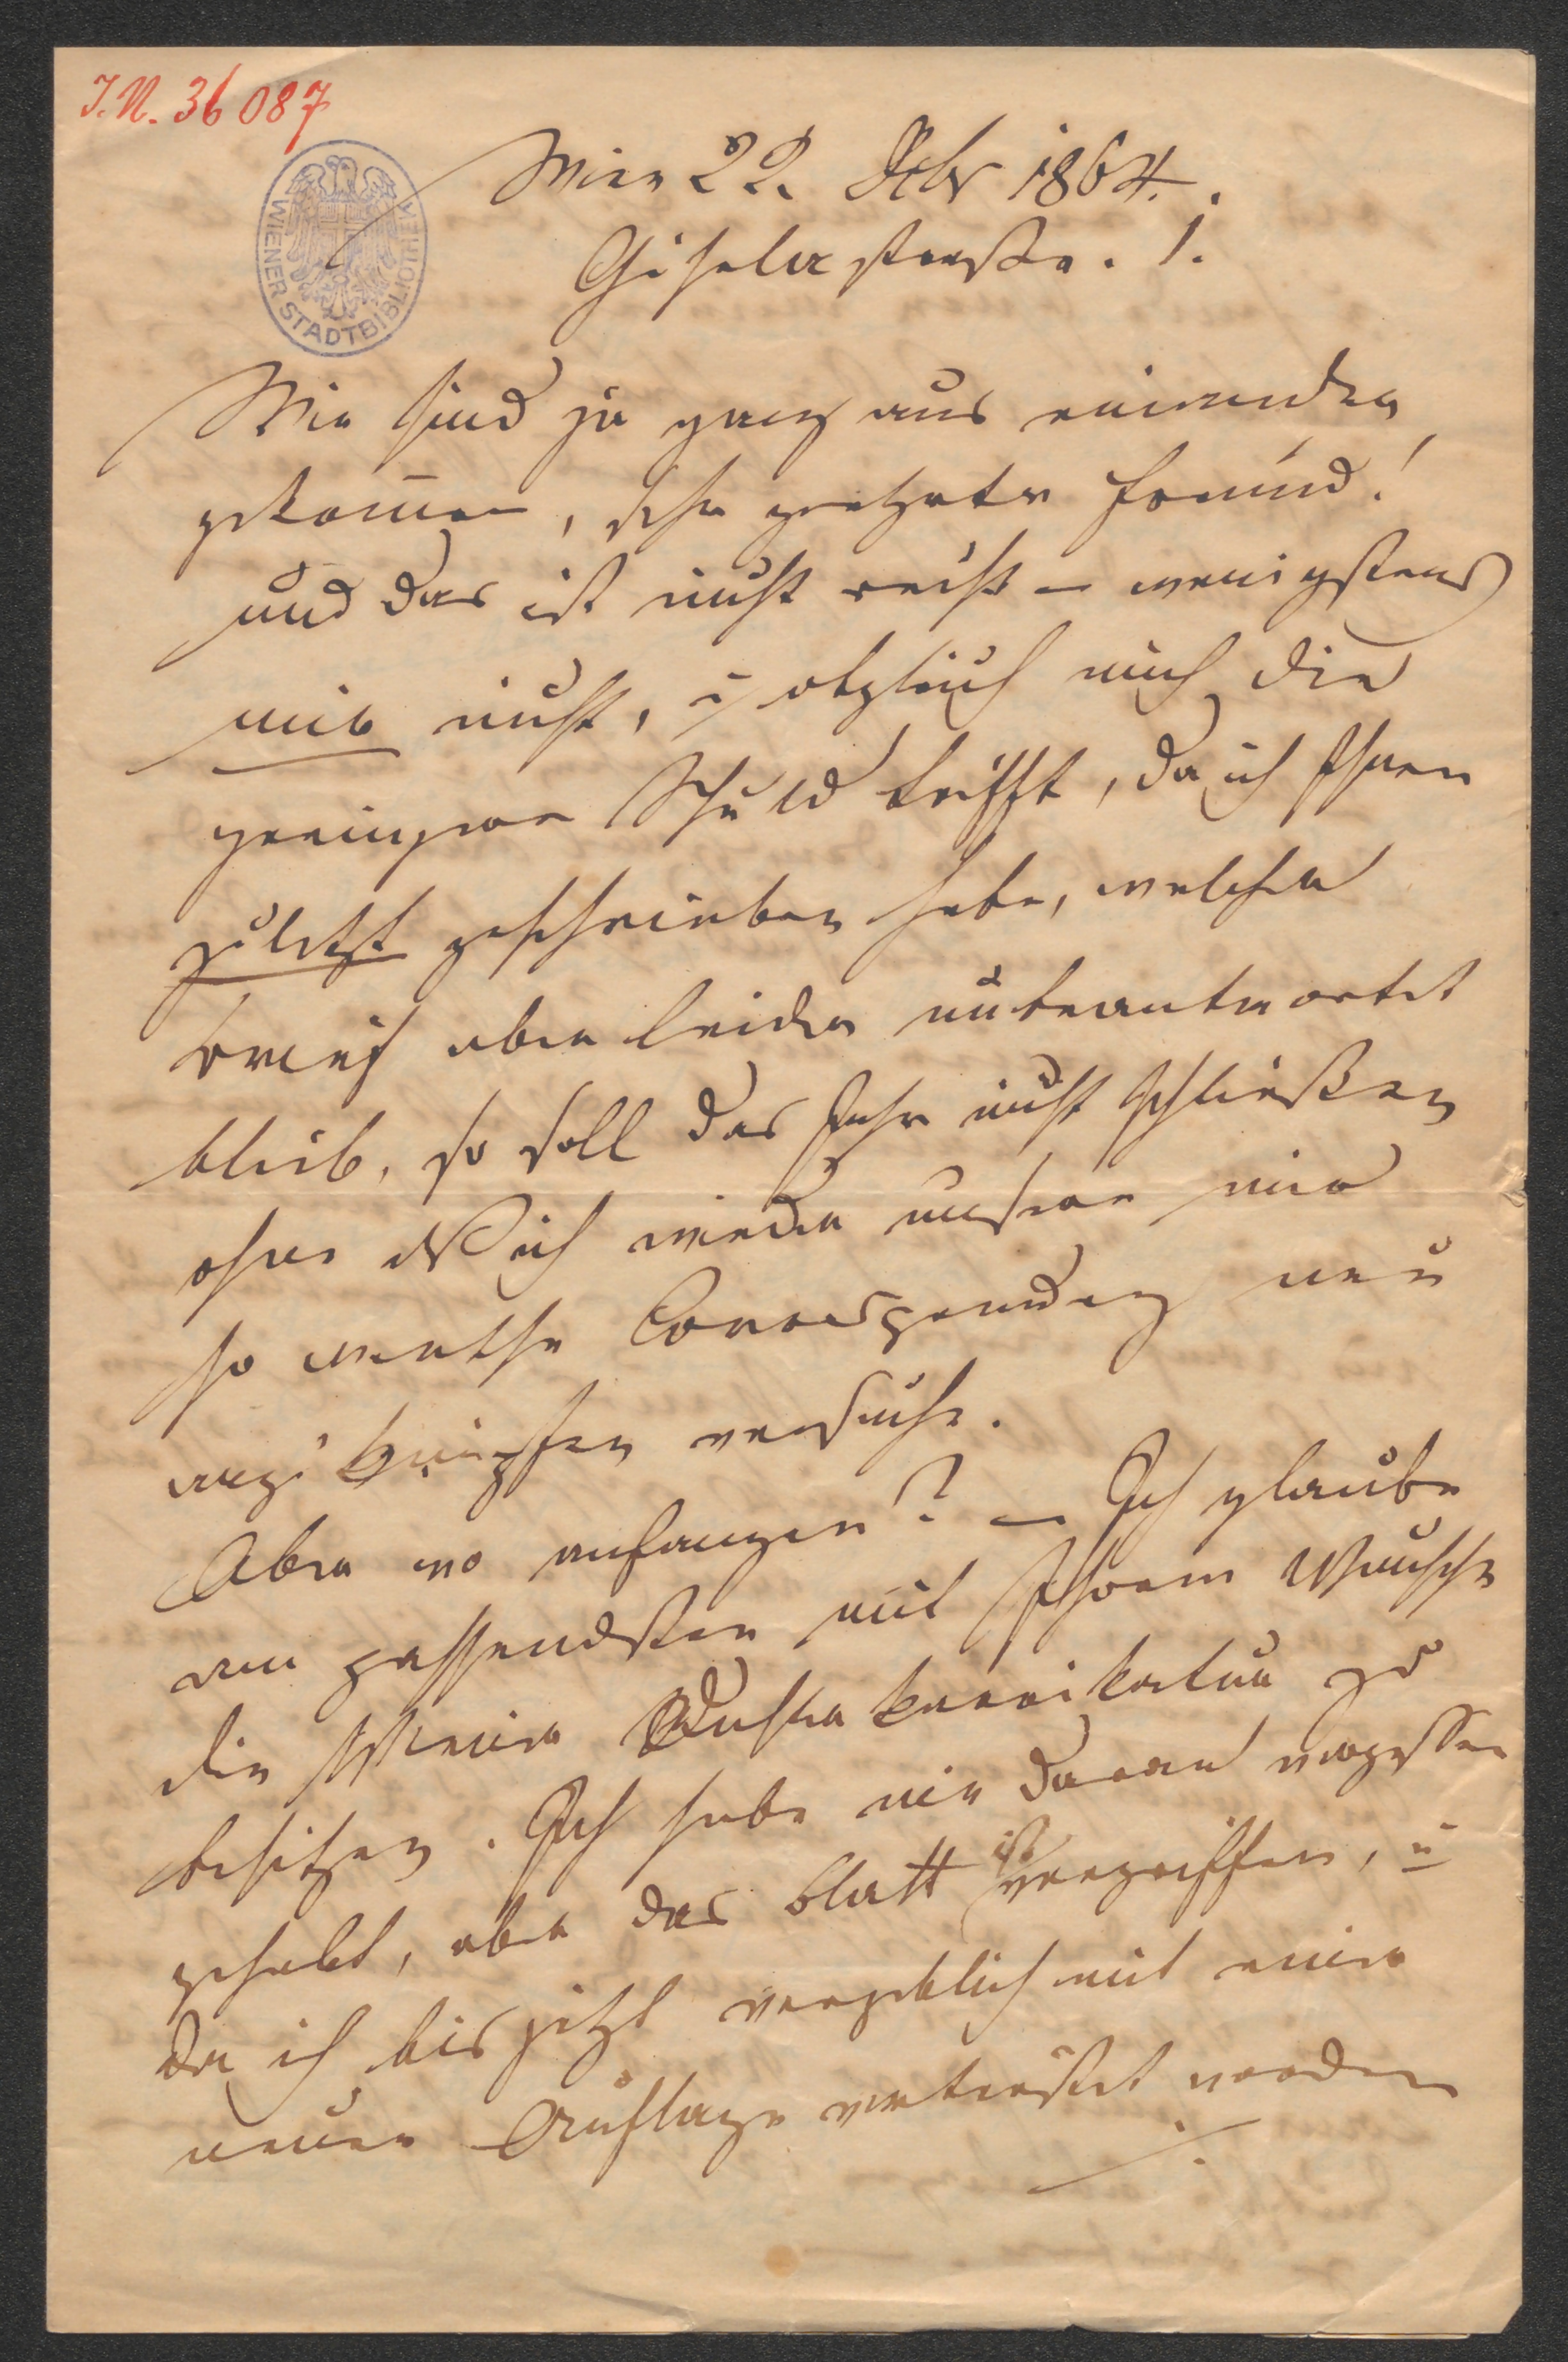 I.N. 36087
WIENER STADTBIBLIOTHEK
Wien 22. Dcbr 1864.
Giselastraße. 1.
Wir sind ja ganz aus einander
gekom̄en, sehr geehrter Freund!
und das ist nicht recht – wenigstens
mir nicht, u obgleich mich die
geringere Schuld trifft, da ich Ihnen
zuletzt geschrieben habe, welcher
Brief aber leider unbeantwortet
blieb, so soll das Jahr nicht schließen
ohne daß ich wieder unsere mir
so werthe Correspondenz neu
anzuknüpfen versuche.
Aber wo anfangen? – Ich glaube
am passendsten mit Ihrem Wunsche
die karrikatur zu
besitzen. Ich habe nie daran vergessen
gehabt, aber das Blatt ist vergriffen, u
da ich bis jetzt vergeblich mit einer
neuen Auflage vertröstet worden
./.